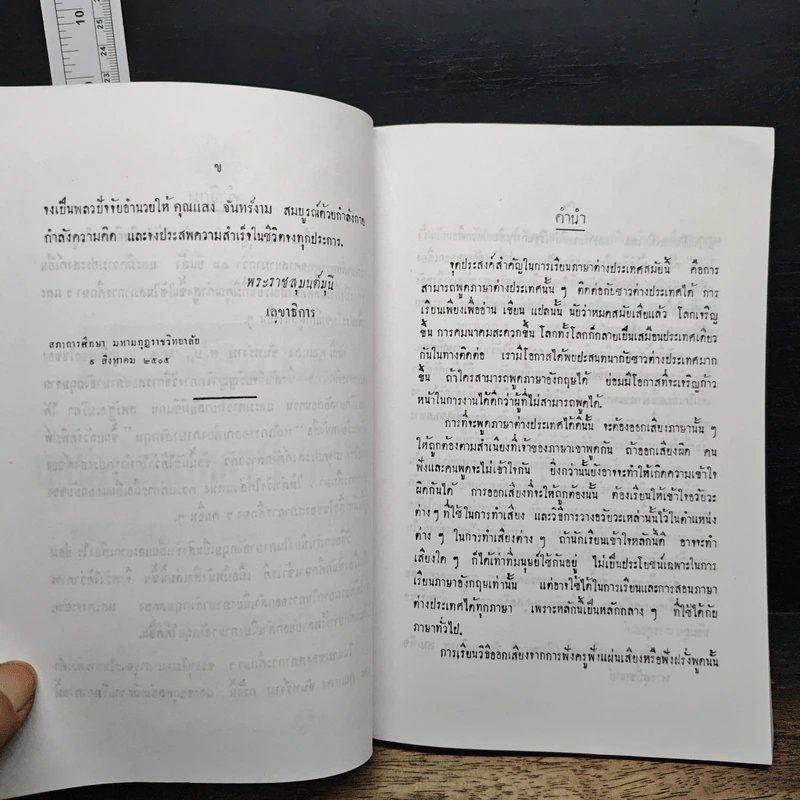 10
25
24
23
ข
จงเป็นพลวปัจจัยอำนวยให้ คุณแสง จันทร์งาม สมบูรณ์ด้วยกำลังกาย
กำลังความคิด และจงประสพความสำเร็จในชีวิตจงทุกประการ.
พระราชสุมนต์มุนี
เลขาธิการ
สภาการศึกษา มหามกุฏราชวิทยาลัย
๑ สิงหาคม ๒๕๐๕
คำนำ
จุดประสงค์สำคัญในการเรียนภาษาต่างประเทศสมัยนี้ คือการ
สามารถพูดภาษาต่างประเทศนั้น ๆ ติดต่อกับชาวต่างประเทศได้ การ
เรียนเพียงเพื่ออ่าน เขียน แปลนั้น นับว่าหมดสมัยเสียแล้ว โลกเจริญ
ขึ้น การคมนาคมสะดวกขึ้น โลกทั้งโลกก็กลายเป็นเสมือนประเทศเดียว
กันในทางติดต่อ เรามีโอกาสได้พบปะสนทนากับชาวต่างประเทศมาก
ขึ้น ถ้าใครสามารถพูดภาษาอังกฤษได้ ย่อมมีโอกาสที่จะเจริญก้าว
หน้าในการงานได้ดีกว่าผู้ที่ไม่สามารถพูดได้.
การที่จะพูดภาษาต่างประเทศได้ดีนั้น จะต้องออกเสียงภาษานั้น ๆ
ให้ถูกต้องตามสำเนียงที่เจ้าของภาษาเขาพูดกัน ถ้าออกเสียงผิด คน
ฟังและคนพูดจะไม่เข้าใจกัน ยิ่งกว่านั้นยังอาจจะทำให้เกิดความเข้าใจ
ผิดกันได้ การออกเสียงที่จะให้ถูกต้องนั้น ต้องเรียนให้เข้าใจอวัยวะ
ต่าง ๆ ที่ใช้ในการทำเสียง และวิธีการวางอวัยวะเหล่านั้นไว้ในตำแหน่ง
ต่าง ๆ ในการทำเสียงต่าง ๆ ถ้านักเรียนเข้าใจหลักนี้ดี อาจจะทำ
เสียงใด ๆ ก็ได้เท่าที่มนุษย์ใช้กันอยู่ ไม่เป็นประโยชน์เฉพาะในการ
เรียนภาษาอังกฤษเท่านั้น แต่อาจใช้ได้ในการเรียนและการสอนภาษา
ต่างประเทศได้ทุกภาษา เพราะหลักนี้เป็นหลักกลาง ๆ ที่ใช้ได้กับ
ภาษาทั่วไป.
การเรียนวิธีออกเสียงจากการฟังครูฟังแผ่นเสียงหรือฟังฝรั่งพูดนั้น